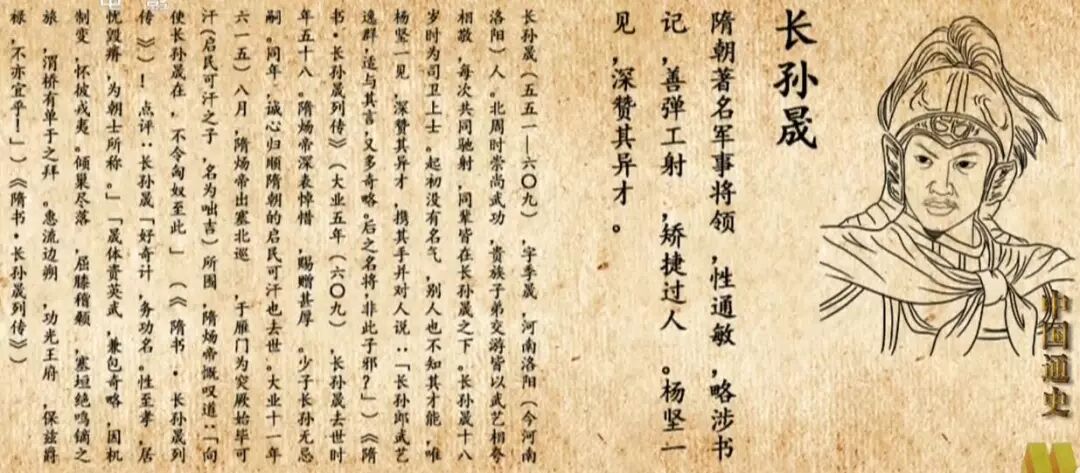 长孙晟
隋朝著名军事将领,性通敏,略涉书
记,善弹工射,矫捷过人。杨坚一
见,深赞其异才。
长孙晟(五五一—六〇九),字季晟,河南洛阳(今河南
洛阳)人。北周时崇尚武功,贵族子弟交游皆以武艺相夸
相敬,每次共同驰射,同辈皆在长孙晟之下。长孙晟十八
岁时为司卫上士。起初没有名气,别人也不知其才能,唯
杨坚一见,深赞其异才,携其手并对人说:“「长孙郎武艺
逸群,适与其言,又多奇略。后之名将,非此子邪?」”(《隋
书·长孙晟列传》(大业五年(六〇九),长孙晟去世时
年五十八。隋炀帝深表悼惜,赐赠甚厚。少子长孙无忌
嗣。同年,诚心归顺隋朝的启民可汗也去世。大业十一年
(六一五)八月,隋炀帝出塞北巡,于雁门为突厥始毕可
汗(启民可汗之子,名为咄吉)所围,隋炀帝慨叹道:“「向
使长孙晟在,不令匈奴至此」”(《隋书·长孙晟列
传》)!点评:长孙晟「好奇计,务功名。性至孝,居
忧毁瘠,为朝士所称。」「晟体资英武,兼包奇略,因机
制变,怀彼戎夷。倾巢尽落,屈膝稽颡,塞垣绝鸣镝之
旅,渭桥有单于之拜。惠流边朔,功光王府,保兹爵
禄,不亦宜乎!」(《隋书·长孙晟列传》)
中国通史